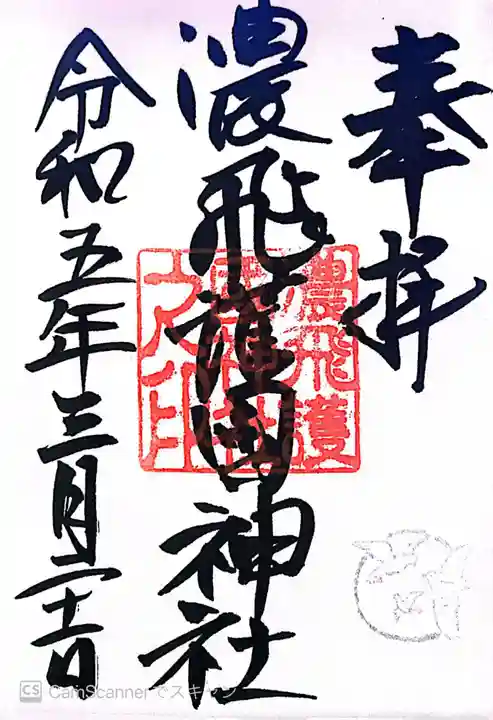 奉拝
濃飛護國神社
濃飛護
國神社
之印
令和五年三月二十二日
CS CamScannerでスキャン